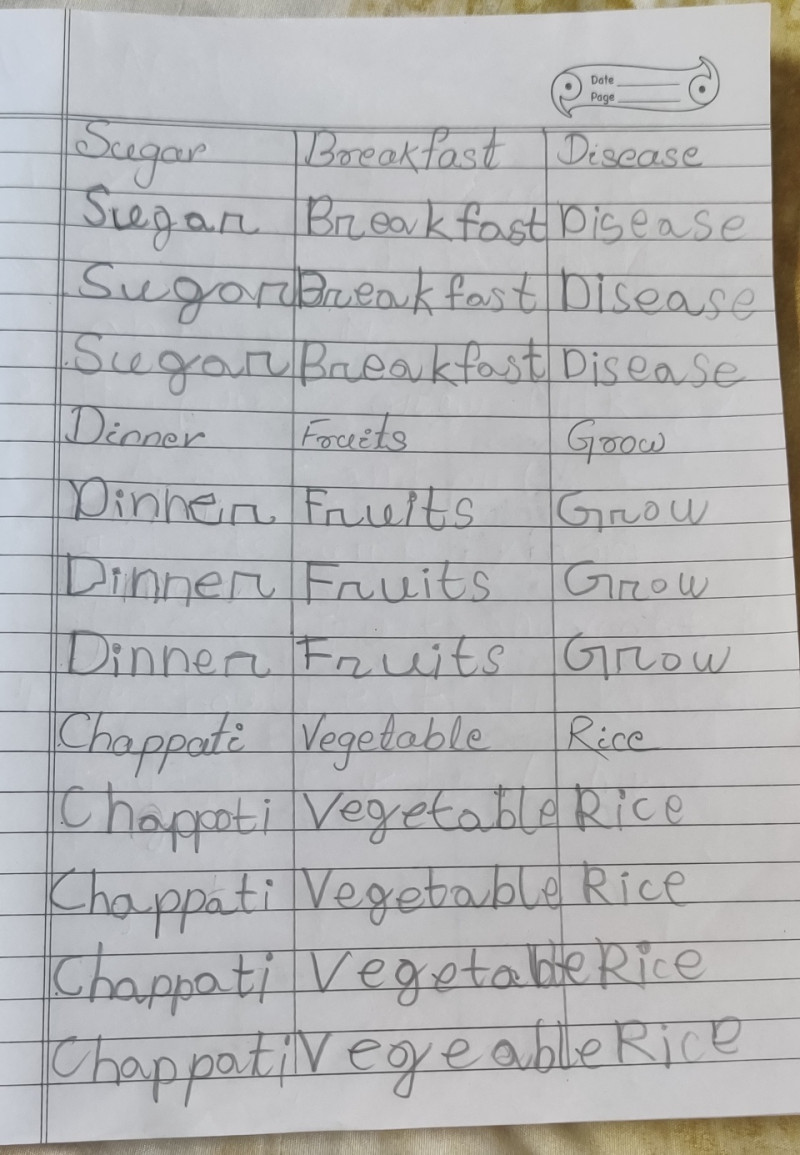 Date
Page
Sugar Breakfast Disease
Sugar Breakfast Disease
Sugar Breakfast Disease
Sugar Breakfast Disease
Dinner Fruits Grow
Dinner Fruits Grow
Dinner Fruits Grow
Dinner Fruits Grow
Chappati Vegetable Rice
Chappoti Vegetable Rice
Chappati Vegetable Rice
Chappati Vegetable Rice
Chappati Vegeable Rice